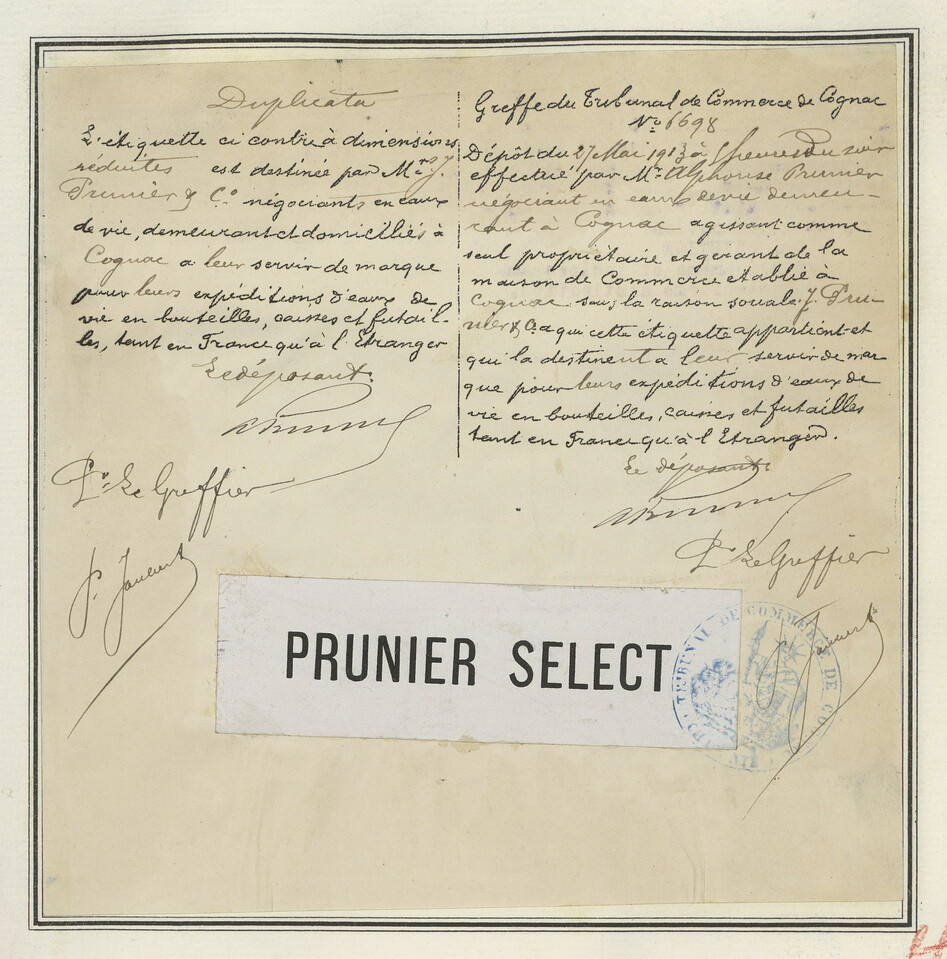 Duplicata
L'étiquette ci contre à dimensions
réduites est destinée par Mrs J.
Prunier & Co. négociants en eaux
de vie, demeurant et domiciliés à
Cognac a leur servir de marque
pour leurs expéditions d'eaux de
vie en bouteilles, caisses et futail-
les, tant en France qu'à l'Etranger
Le déposant.
Pr. Le Greffier
Greffe du Tribunal de Commerce de Cognac
No 6698
Dépôt du 27 Mai 1913 à heures du soir
effectué par Mr. Alphonse Prunier
négociant en eaux de vie demeu-
rant à Cognac agissant comme
seul propriétaire et gérant de la
maison de Commerce établie à
Cognac sous la raison sociale J. Pru-
nier & Co a qui cette étiquette appartient et
qui la destinent à leur servir de mar
que pour leurs expéditions d'eaux de
vie en bouteilles, caisses et futailles
tant en France qu'à l'Etranger.
Le déposant
Pr Le Greffier
PRUNIER SELECT
TRIBUNAL DE COMMERCE DE